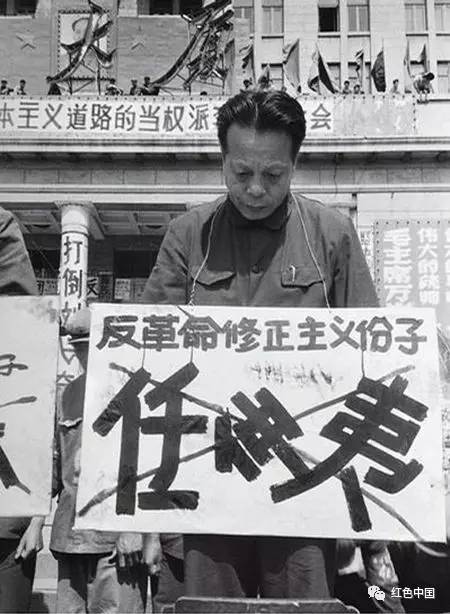 本主义道路的当权派
会
打倒
伟大的
毛主席万
反革命修正主义份子
任仲夷
子
红色中国